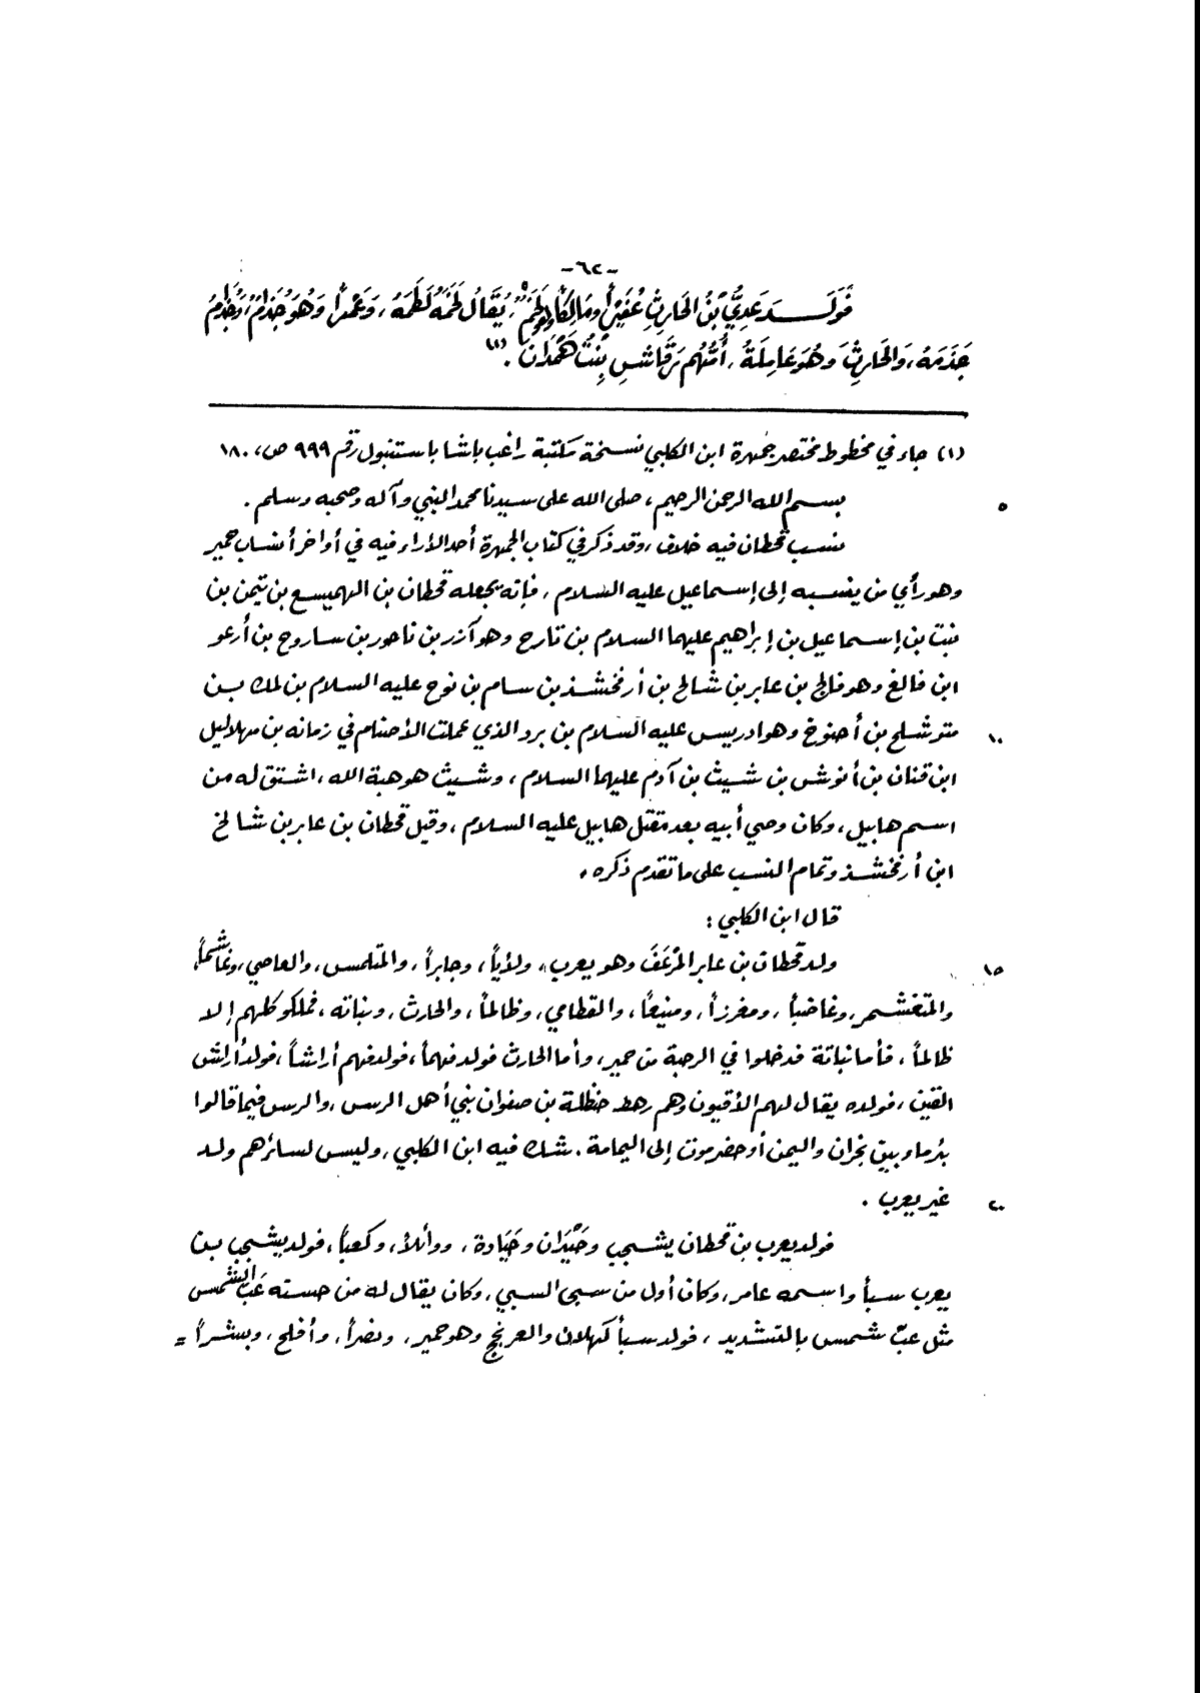 -٦٢-
فَوَلَـــدَ عَدِيُّ بْنُ الحَارِثِ عُفَيْرًا وَمَالِكًا وَهُوَ لَخْمٌ، يُقَالُ لَخَمَهُ لَطَمَهُ، وَعَمْرًا وَهُوَ جُذَامُ، وَجُذِامُ
جَذَمَهُ، وَالحَارِثَ وَهُوَ عَامِلَةُ، أُمُّهُم رَقَاشِ بِنْتُ هَمْدَانَ.(١)
(١) جاء في مخطوط مختصر جمهرة ابن الكلبي نسخة مكتبة راغب باشا باستنبول رقم ٩٩٩ ص، ١٨٠
٥ بسم الله الرحمن الرحيم، صلى الله على سيدنا محمد النبي وآله وصحبه وسلم.
نسب قحطان فيه خلاف، وقد ذكر في كتاب الجمهرة أحد الأراء فيه في أواخر أنساب حمير
وهو رأي من ينسبه إلى إسماعيل عليه السلام، فإنه يجعله قحطان بن الهميسع بن تيمن بن
نبت بن إسماعيل بن إبراهيم عليهما السلام بن تارح وهو آزر بن ناحور بن ساروح بن أرعو
ابن فالغ وهو فالج بن عابر بن شالح بن أرفخشذ بن سام بن نوح عليه السلام بن لمك بــن
١٠ متوشلح بن أحنوخ وهو ادريس عليه السلام بن يرد الذي عملت الأصنام في زمانه بن مهلاليل
ابن قنان بن أنوش بن شيث بن آدم عليهما السلام، وشيث هو هبة الله، اشتق له من
اسم هابيل، وكان وصي أبيه بعد مقتل هابيل عليه السلام، وقيل قحطان بن عابر بن شالخ
ابن أرفخشذ وتمام النسب على ما تقدم ذكره.
قال ابن الكلبي:
١٥ ولد قحطان بن عابر المُرْعَفَ وهو يعرب، ولأياً، وجابراً، والمتلمس، والعاصي، وغاشماً،
والمتغشمر، وغاضباً، ومغرزاً، ومنيعاً، والقطامي، وظالماً، والحارث، ونباته، فهلكو كلهم إلا
ظالماً، فأما نباتة فدخلوا في الرحبة من حمير، وأما الحارث فولد فهماً، فولد فهم أراشاً، فولد أراش
القين، فولده يقال لهم الأقيون وهم رهط حنظلة بن صفوان نبي أهل الرس، والرس فيما قالوا
بئر ما بين نجران واليمن أو حضرموت إلى اليمامة. شك فيه ابن الكلبي، وليس لسائرهم ولد
٢٠ غير يعرب.
فولد يعرب بن قحطان يشجب وحَيْدَان وحَيَادة، ووائلاً، وكعباً، فولد يشجب بــن
يعرب سبأ واسمه عامر، وكان أول من سبى السبي، وكان يقال له من حسنه عَب الشمس
مثل عبّ شمس بالتشديد، فولد سبأ كهلان والعرنجج وهو حمير، ونصراً، وأفلح، وبشراً =